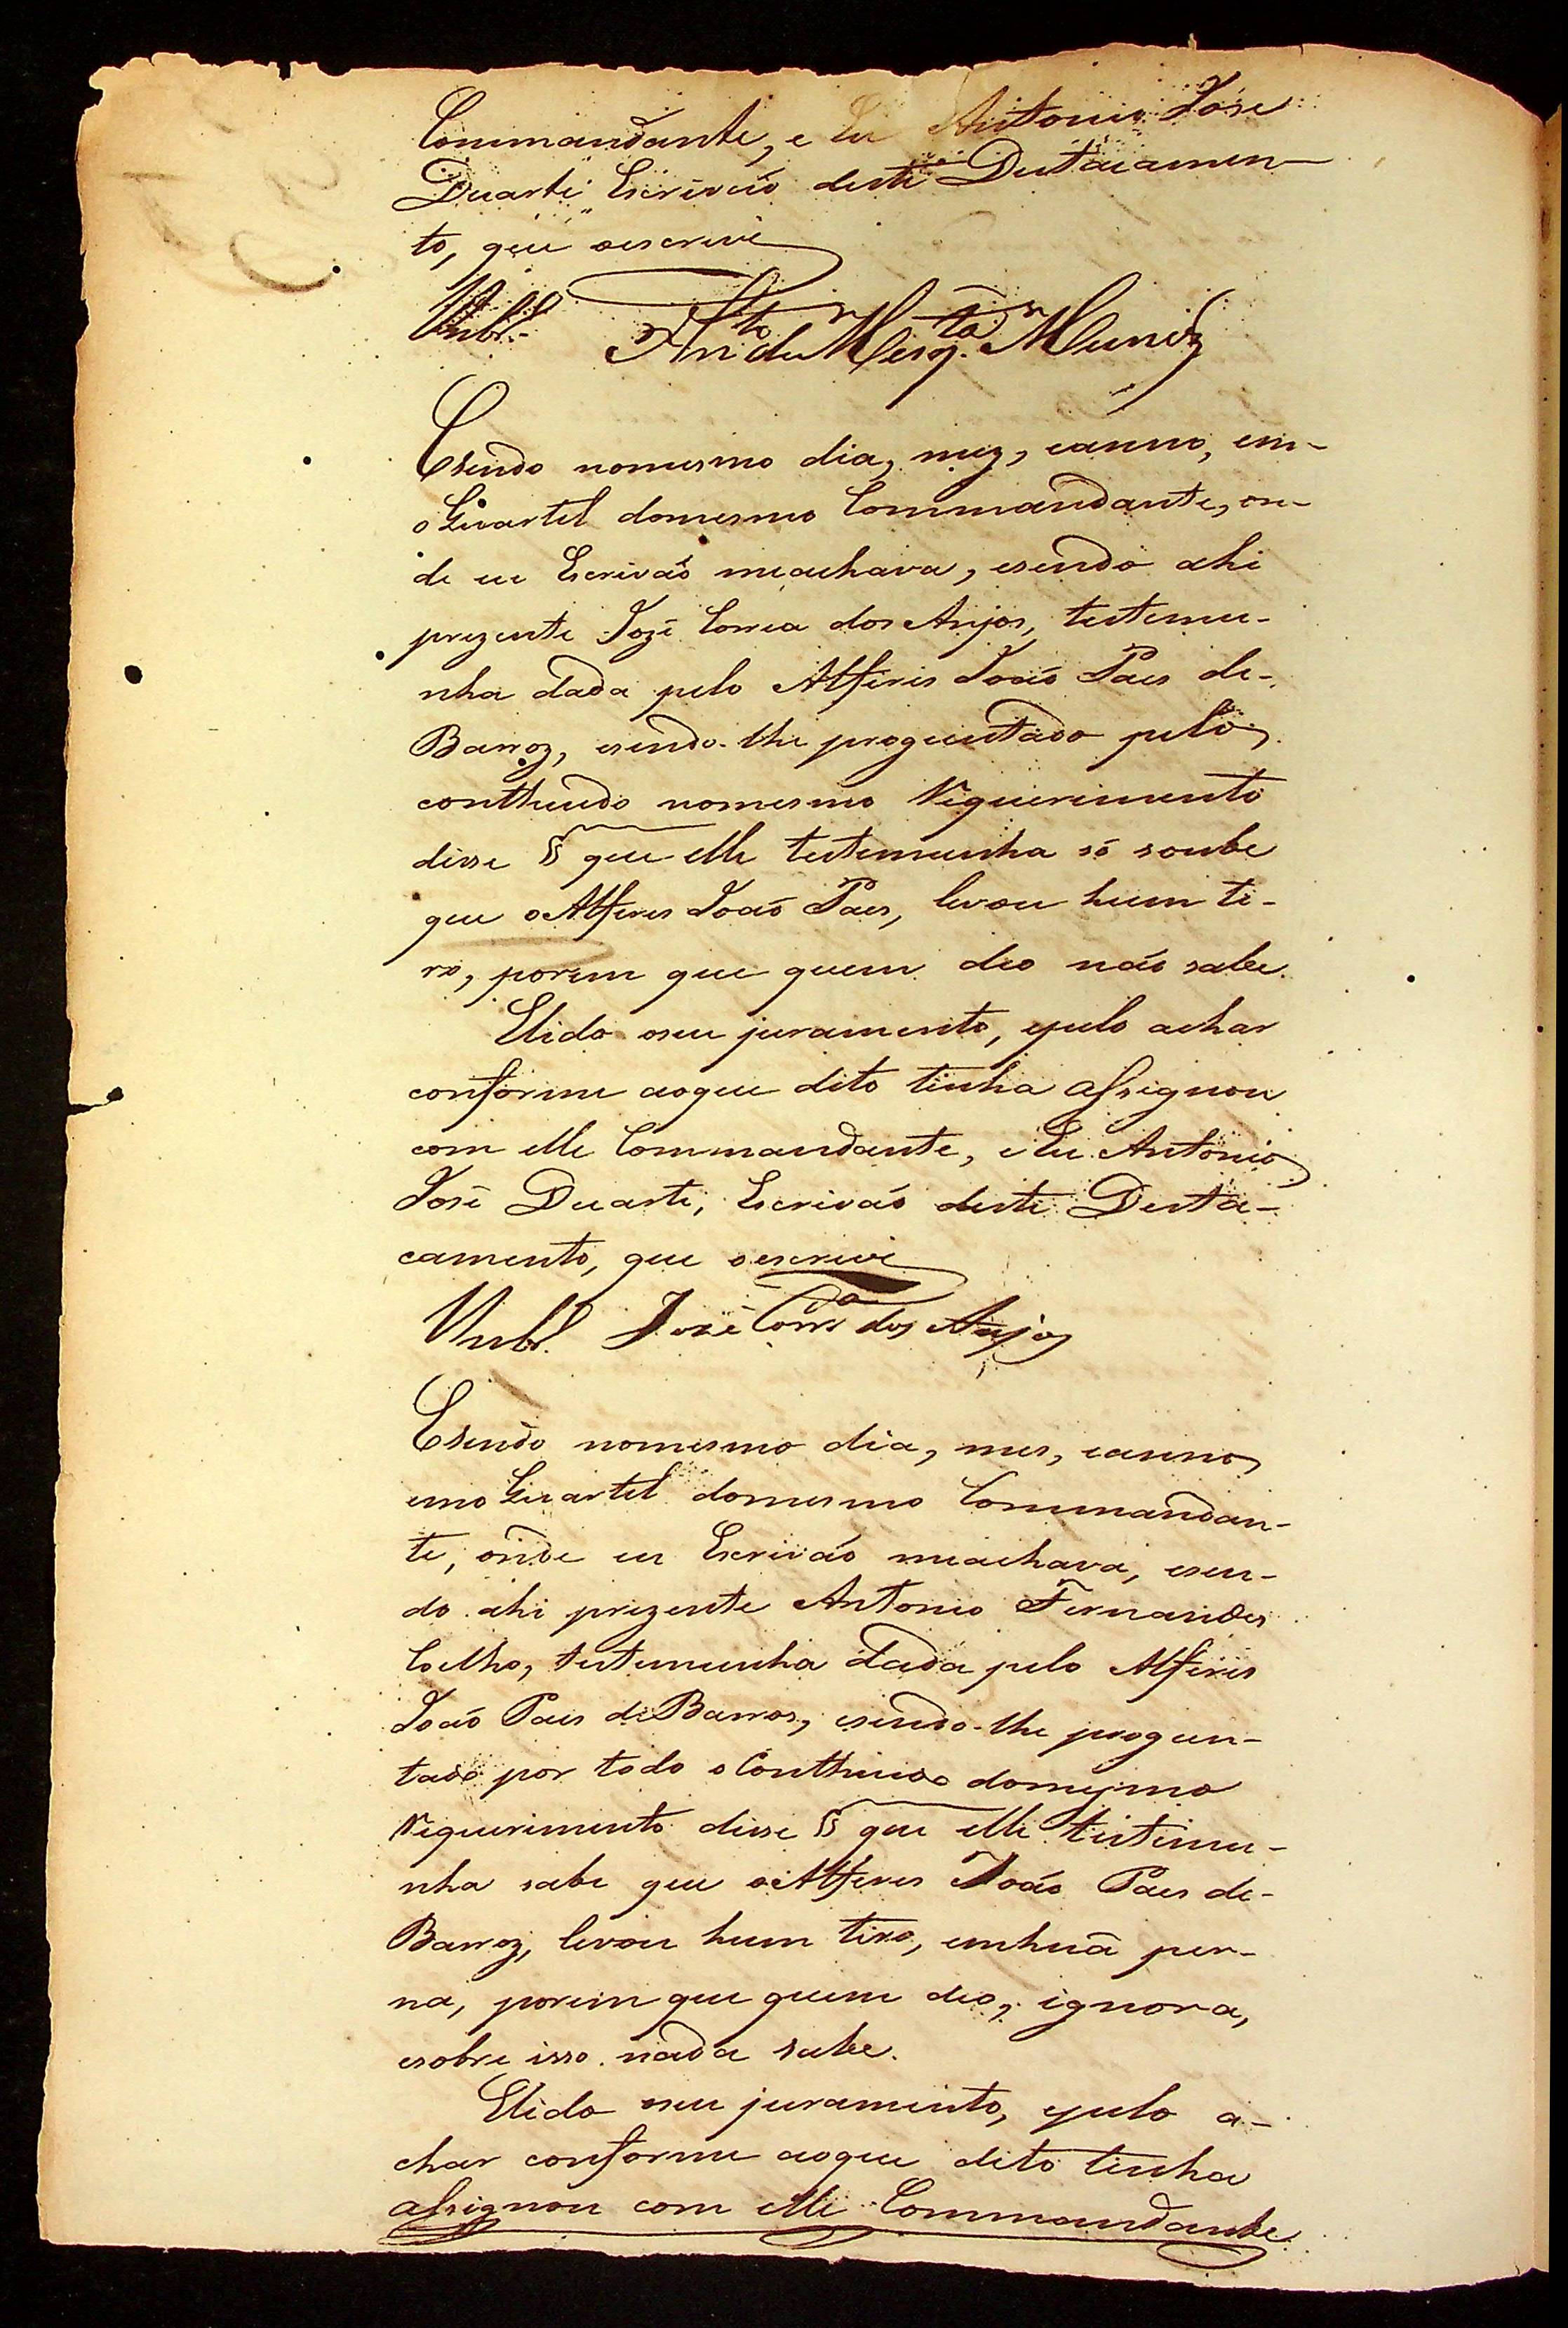 Commandante, e Eu Antonio José
Duarte Escrivaõ deste Destacamen-
to, que oescrevi
Antº de Mesqta Muniz
Esendo nomesmo dia, mez, eanno, em-
o Quartel domesmo Commandante, on-
de eu Escrivaõ meachava, esendo ahi
prezente Jozé Correa dos Anjos, testemu-
nha dada pelo Alferes Joaõ Paes de-
Barroz, esendo-lhe proguntado pelo
conthiudo nomesmo Requerimento
disse § que elle testemunha só soube
que oAlferes Joaõ Paes, levou hum ti-
ro, porem que quem deo naõ sabe.
Elido oseu juramento, epelo achar
conforme aoque dito tinha assignou
com elle Commandante, e Eu Antonio
José Duarte, Escrivaõ deste Desta-
camento, que oescrevi
Jozé Corra dos Anjos
Esendo nomesmo dia, mes, eanno,
emo Quartel domesmo Commandan-
te, onde eu Escrivaõ meachava, esen-
do ahi prezente Antonio Fernandes
Coelho, testemunha dada pelo Alferes
Joaõ Paes deBarros, esendo-lhe progun-
tado por todo oConthiudo domesmo
Requerimento disse § que elle testemu-
nha sabe que oAlferes Joaõ Paes de-
Barroz, levou hum tiro, emhuã per-
na, porem que quem deo, ignora,
esobre isso nada sabe.
Elido oseu juramento, epelo a-
char conforme aoque dito tinha
assignou com elle Commandante